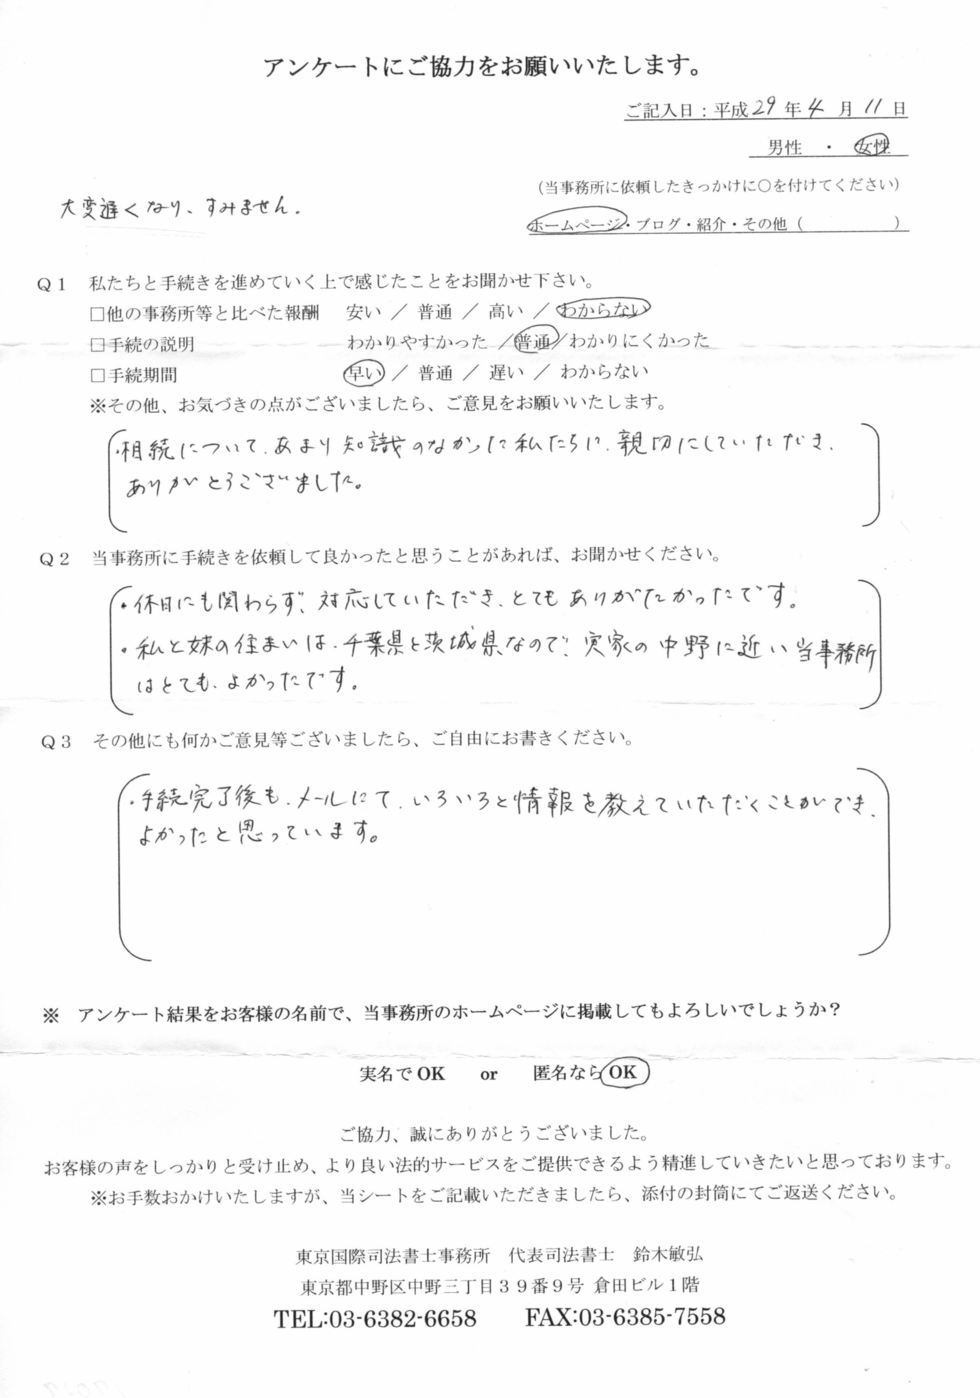 アンケートにご協力をお願いいたします。
ご記入日：平成29年4月11日
男性 ・ 女性
（当事務所に依頼したきっかけに○を付けてください）
大変遅くなり、すみません。
ホームページ・ブログ・紹介・その他（　　　　　）
Ｑ１　私たちと手続きを進めていく上で感じたことをお聞かせ下さい。
□他の事務所等と比べた報酬　安い ／ 普通 ／ 高い ／ わからない
□手続の説明　わかりやすかった ／普通／わかりにくかった
□手続期間　早い ／ 普通 ／ 遅い ／ わからない
※その他、お気づきの点がございましたら、ご意見をお願いいたします。
・相続について、あまり知識のなかった私たちに、親切にしていただき、
ありがとうございました。
Ｑ２　当事務所に手続きを依頼して良かったと思うことがあれば、お聞かせください。
・休日にも関わらず、対応していただき、とてもありがたかったです。
・私と妹の住まいは、千葉県と茨城県なので、実家の中野に近い当事務所
はとても、よかったです。
Ｑ３　その他にも何かご意見等ございましたら、ご自由にお書きください。
・手続完了後も、メールにて、いろいろと情報を教えていただくことができ、
よかったと思っています。
※　アンケート結果をお客様の名前で、当事務所のホームページに掲載してもよろしいでしょうか？
実名でOK　or　匿名ならOK
ご協力、誠にありがとうございました。
お客様の声をしっかりと受け止め、より良い法的サービスをご提供できるよう精進していきたいと思っております。
※お手数おかけいたしますが、当シートをご記載いただきましたら、添付の封筒にてご返送ください。
東京国際司法書士事務所　代表司法書士　鈴木敏弘
東京都中野区中野三丁目３９番９号 倉田ビル１階
TEL:03-6382-6658　FAX:03-6385-7558